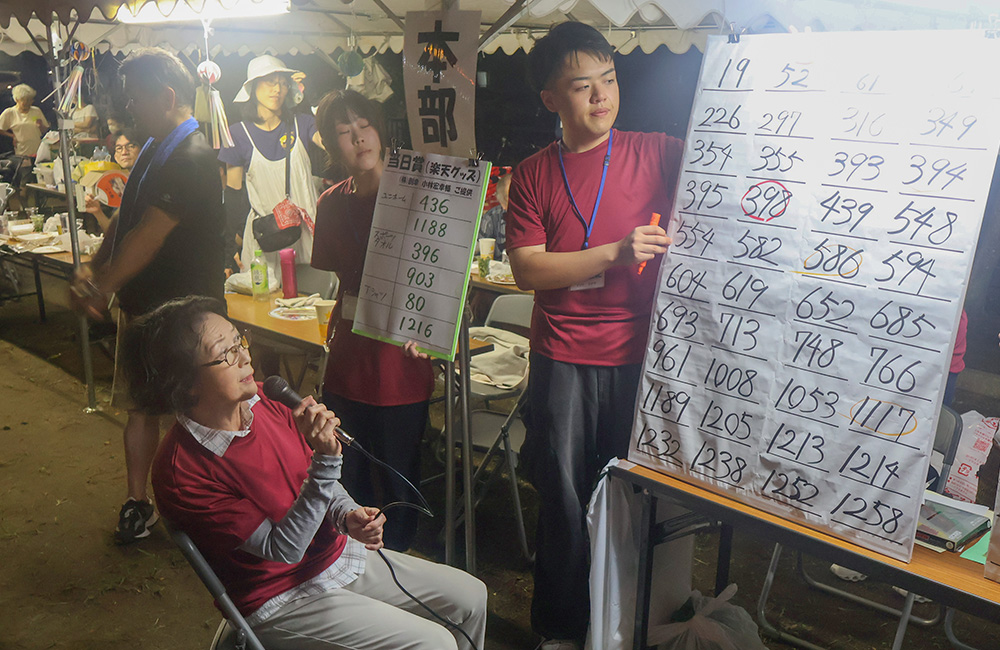 本部
当日賞(楽天グッズ)
ご提供
436
1188
396
903
80
1216
19 52 61
226 297 316 349
354 355 393 394
395 398 439 548
554 582 586 594
604 619 652 685
693 713 748 766
961 1008 1053 1117
1189 1205 1213 1214
1232 1238 1252 1258